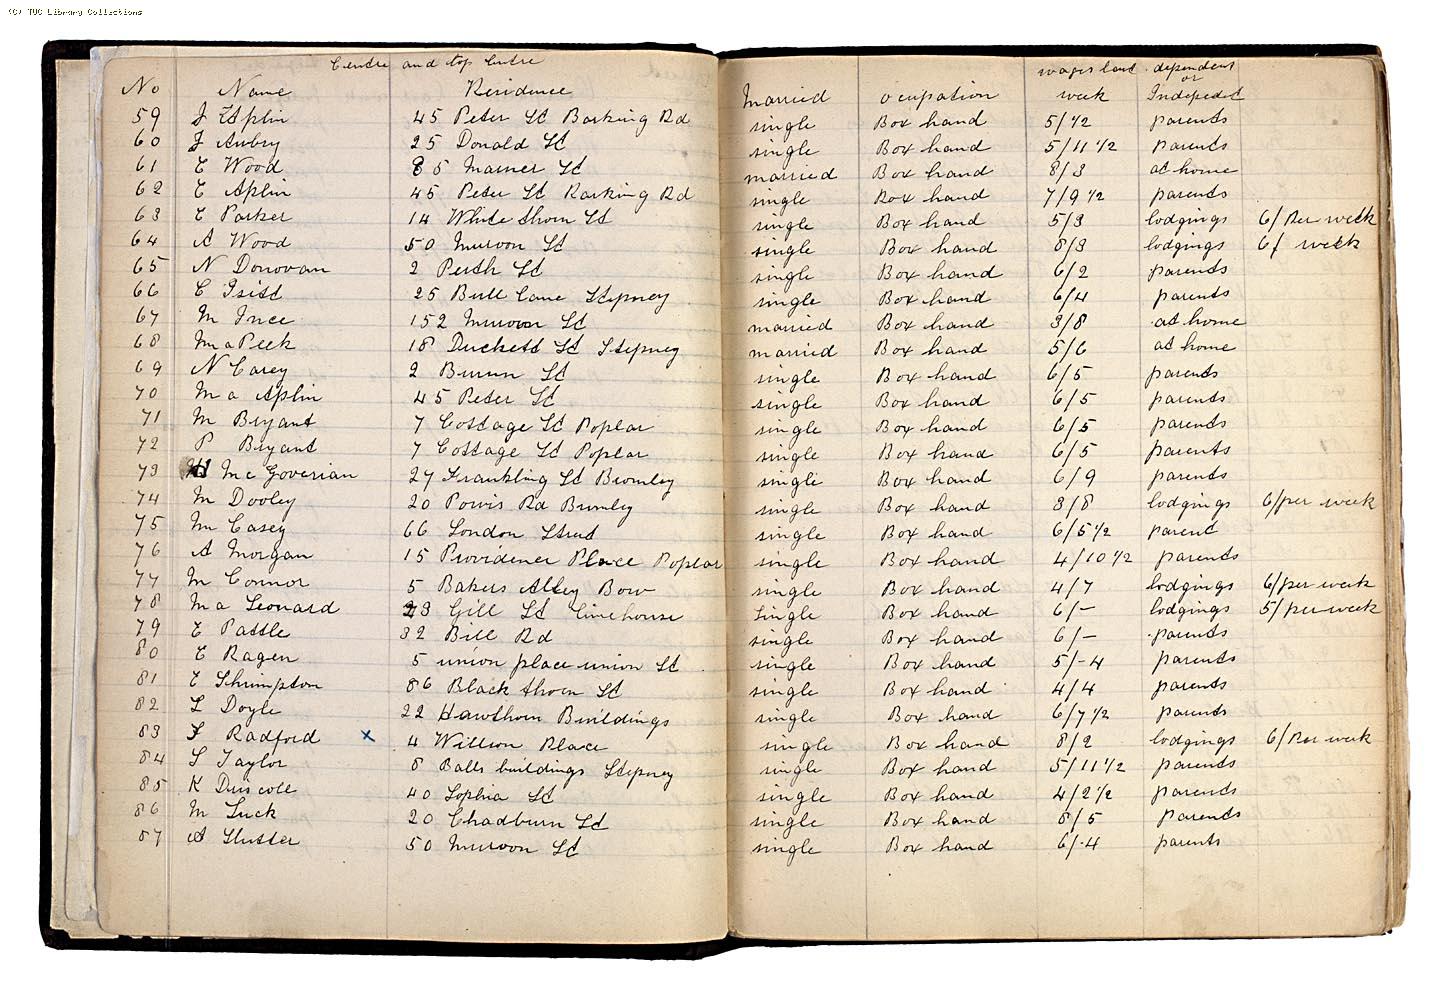 (C) TUC Library Collections
Centre and top Centre
No Name Residence Married ocupation wages last week dependent or Independet
59 J Esplin 45 Peter St Barking Rd single Box hand 5/ 1/2 parents
60 J Aubry 25 Donald St single Box hand 5/11 1/2 parents
61 E Wood 85 Marner St married Box hand 8/3 at home
62 E Aplin 45 Peter St Barking Rd single Box hand 7/9 1/2 parents
63 E Parker 14 White thorn St single Box hand 5/3 lodgings 6/ Per week
64 A Wood 50 Munroon St single Box hand 8/3 lodgings 6/ week
65 N Donovan 2 Perth St single Box hand 6/2 parents
66 C 25 Bull Lane Stepney single Box hand 6/4 parents
67 M Ince 152 Munroon St married Box hand 3/8 at home
68 Ma Peek 18 Duckett St Stepney married Box hand 5/6 at home
69 N Carey 2 St single Box hand 6/5 parents
70 Ma Aplin 45 Peter St single Box hand 6/5 parents
71 M Bryant 7 Cottage St Poplar single Box hand 6/5 parents
72 P Bryant 7 Cottage St Poplar single Box hand 6/5 parents
73 H Mc Goverian 27 Frankling St Bromley single Box hand 6/9 parents
74 M Dooley 20 Powis Rd Bromley single Box hand 3/8 lodgings 6/per week
75 M Casey 66 London Street single Box hand 6/5 1/2 parent
76 A Morgan 15 Providence Place Poplar single Box hand 4/10 1/2 parents
77 M Connor 5 Bakers Alley Bow single Box hand 4/7 lodgings 6/per week
78 Ma Leonard 23 Gill St Limehouse single Box hand 6/- lodgings 5/per week
79 E Pattle 32 Bill Rd single Box hand 6/- parents
80 E Ragen 5 union place union St single Box hand 5/-4 parents
81 E Shrimpton 86 Black thorn St single Box hand 4/4 parents
82 L Doyle 22 Hawthorn Buildings single Box hand 6/7 1/2 parents
83 F Radford x 4 Willson Place single Box hand 8/2 lodgings 6/ Per week
84 L Taylor 8 Balls buildings Stepney single Box hand 5/11 1/2 parents
85 K Driscole 40 Sophia St single Box hand 4/2 1/2 parents
86 M Luck 20 Chadburn St single Box hand 8/5 Parents
87 A Slutter 50 Munroon St single Box hand 6/-4 parents